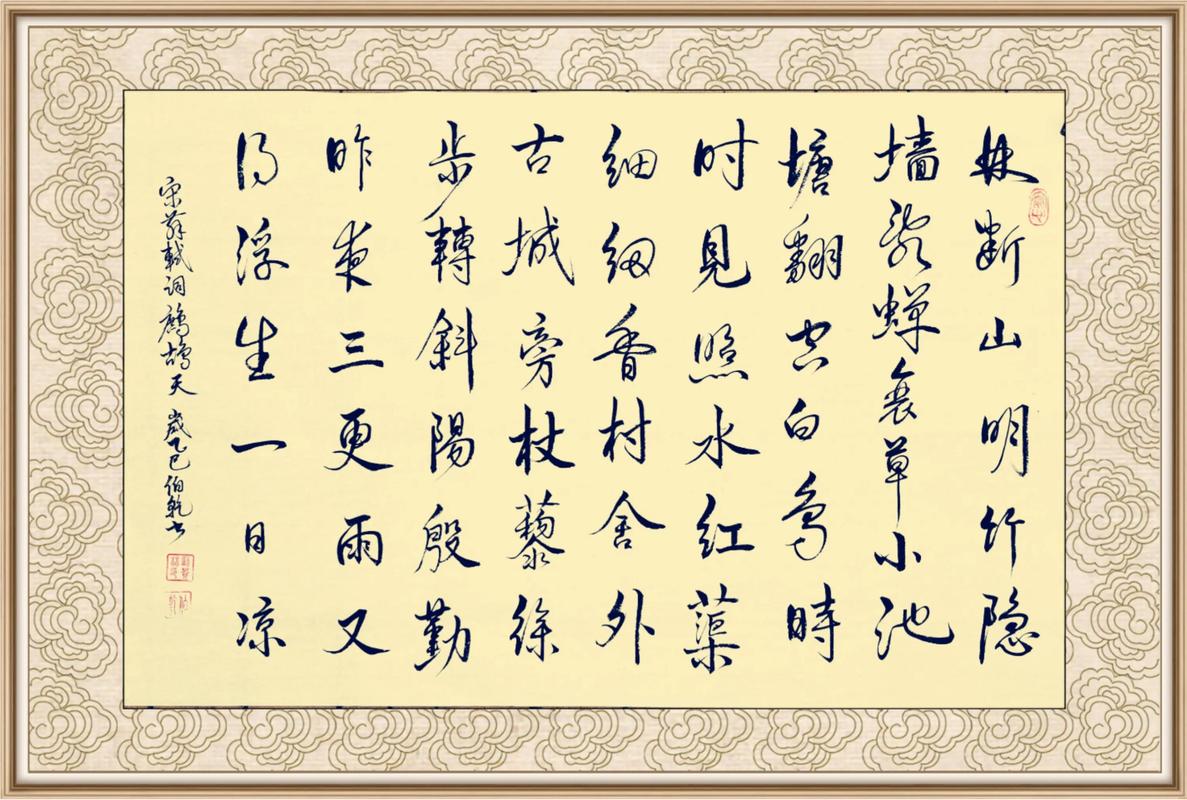 林断山明竹隐
墙亂蝉衰草小池
塘翻空白鸟時
时見照水红蕖
细细香村舍外
古城旁杖藜徐
步轉斜陽殷勤
昨夜三更雨又
得浮生一日凉
宋蘇軾詞鷓鴣天 歲乙巳伯乾书